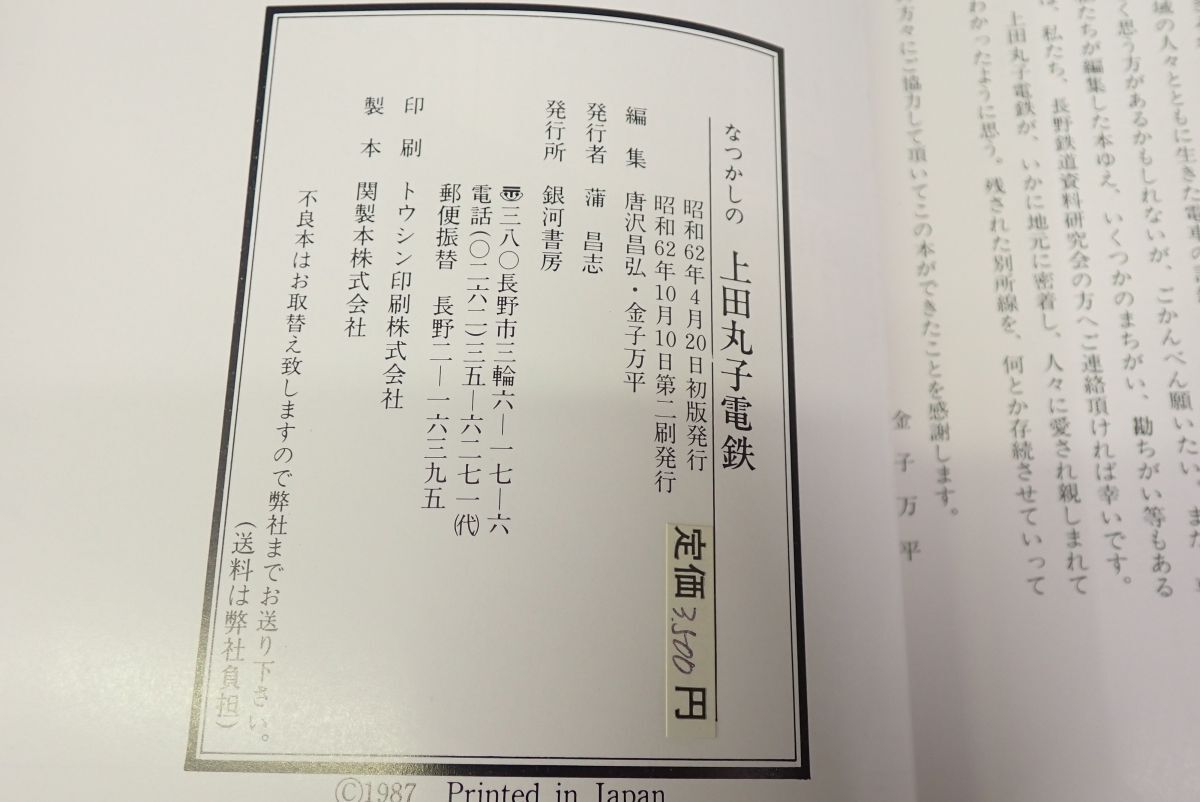 域の人々とともに生きた電車の
く思う方があるかもしれないが、ごかんべん願いたい。また、
たちが編集した本ゆえ、いくつかのまちがい、勘ちがい等もある
は、私たち、長野鉄道資料研究会の方へご連絡頂ければ幸いです。
上田丸子電鉄が、いかに地元に密着し、人々に愛され親しまれて
わかったように思う。残された別所線を、何とか存続させていって
方々にご協力して頂いてこの本ができたことを感謝します。
金子万平
なつかしの 上田丸子電鉄
昭和62年4月20日初版発行
昭和62年10月10日第二刷発行
定価3,500円
編集 唐沢昌弘・金子万平
発行者 蒲 昌志
発行所 銀河書房
〒三八〇長野市三輪六―一七―六
電話(〇二六二)三五―六二七一(代)
郵便振替 長野二―一六三九五
印刷 トウシン印刷株式会社
製本 関製本株式会社
不良本はお取替え致しますので弊社までお送り下さい。
(送料は弊社負担)
©1987 Printed in Japan